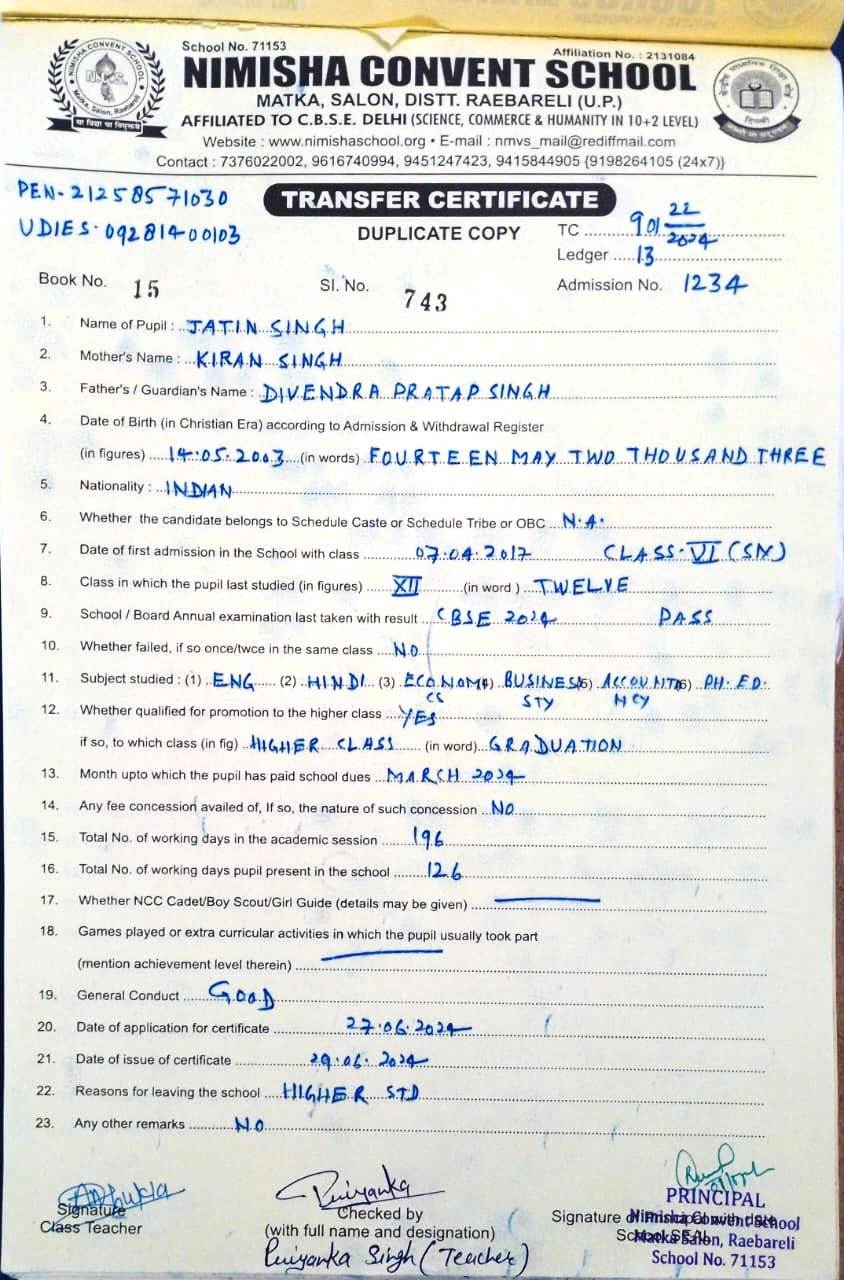 School No. 71153
Affiliation No. : 2131084
NIMISHA CONVENT SCHOOL
MATKA, SALON, DISTT. RAEBARELI (U.P.)
AFFILIATED TO C.B.S.E. DELHI (SCIENCE, COMMERCE & HUMANITY IN 10+2 LEVEL)
Website : www.nimishaschool.org • E-mail : nmvs_mail@rediffmail.com
Contact : 7376022002, 9616740994, 9451247423, 9415844905 {9198264105 (24x7)}
NIMISHA CONVENT SCHOOL
N.C.S.
Matka, Salon, Raebareli
सा विद्या या विमुक्तये
PEN-21258571030
TRANSFER CERTIFICATE
UDIES-09281400103
DUPLICATE COPY
TC 901 22/2024
Ledger 13
Book No. 15 Sl. No. 743 Admission No. 1234
1. Name of Pupil : JATIN SINGH
2. Mother's Name : KIRAN SINGH
3. Father's / Guardian's Name : DIVENDRA PRATAP SINGH
4. Date of Birth (in Christian Era) according to Admission & Withdrawal Register
(in figures) 14.05.2003 (in words) FOURTEEN MAY TWO THOUSAND THREE
5. Nationality : INDIAN
6. Whether the candidate belongs to Schedule Caste or Schedule Tribe or OBC N.A.
7. Date of first admission in the School with class 07.04.2017 CLASS-VI (SIX)
8. Class in which the pupil last studied (in figures) XII (in word ) TWELVE
9. School / Board Annual examination last taken with result CBSE 2024 PASS
10. Whether failed, if so once/twce in the same class NO
11. Subject studied : (1) ENG (2) HINDI (3) ECONOMI (4) BUSINESS (5) ACCOUNTA (6) PH. ED.
CS STY NCY
12. Whether qualified for promotion to the higher class YES
if so, to which class (in fig) HIGHER CLASS (in word) GRADUATION
13. Month upto which the pupil has paid school dues MARCH 2024
14. Any fee concession availed of, If so, the nature of such concession NO
15. Total No. of working days in the academic session 196
16. Total No. of working days pupil present in the school 126
17. Whether NCC Cadet/Boy Scout/Girl Guide (details may be given)
18. Games played or extra curricular activities in which the pupil usually took part
(mention achievement level therein)
19. General Conduct GOOD
20. Date of application for certificate 27.06.2024
21. Date of issue of certificate 29.06.2024
22. Reasons for leaving the school HIGHER STD
23. Any other remarks NO
Priyanka
Signature
Class Teacher
Checked by
(with full name and designation)
Priyanka Singh (Teacher)
Signature of Principal with date
School SEAL
PRINCIPAL
Nimisha Convent School
Matka Salon, Raebareli
School No. 71153